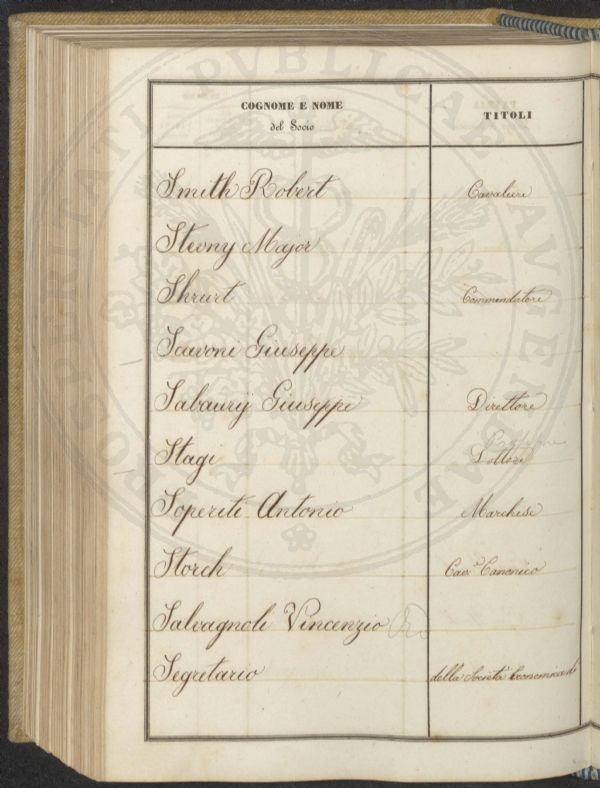 PROSPERITATI PVBLICAE AVGENDAE
COGNOME E NOME
del Socio
TITOLI
Smith Robert Cavaliere
Steony Major
Shrurt Commendatore
Scavoni Giuseppe
Sabaurij Giuseppe Direttore
Stagi Dottore
Soperiti Antonio Marchese
Storch Cav.e Canonico
Salvagnoli Vincenzio
Segretario della Società Economica di